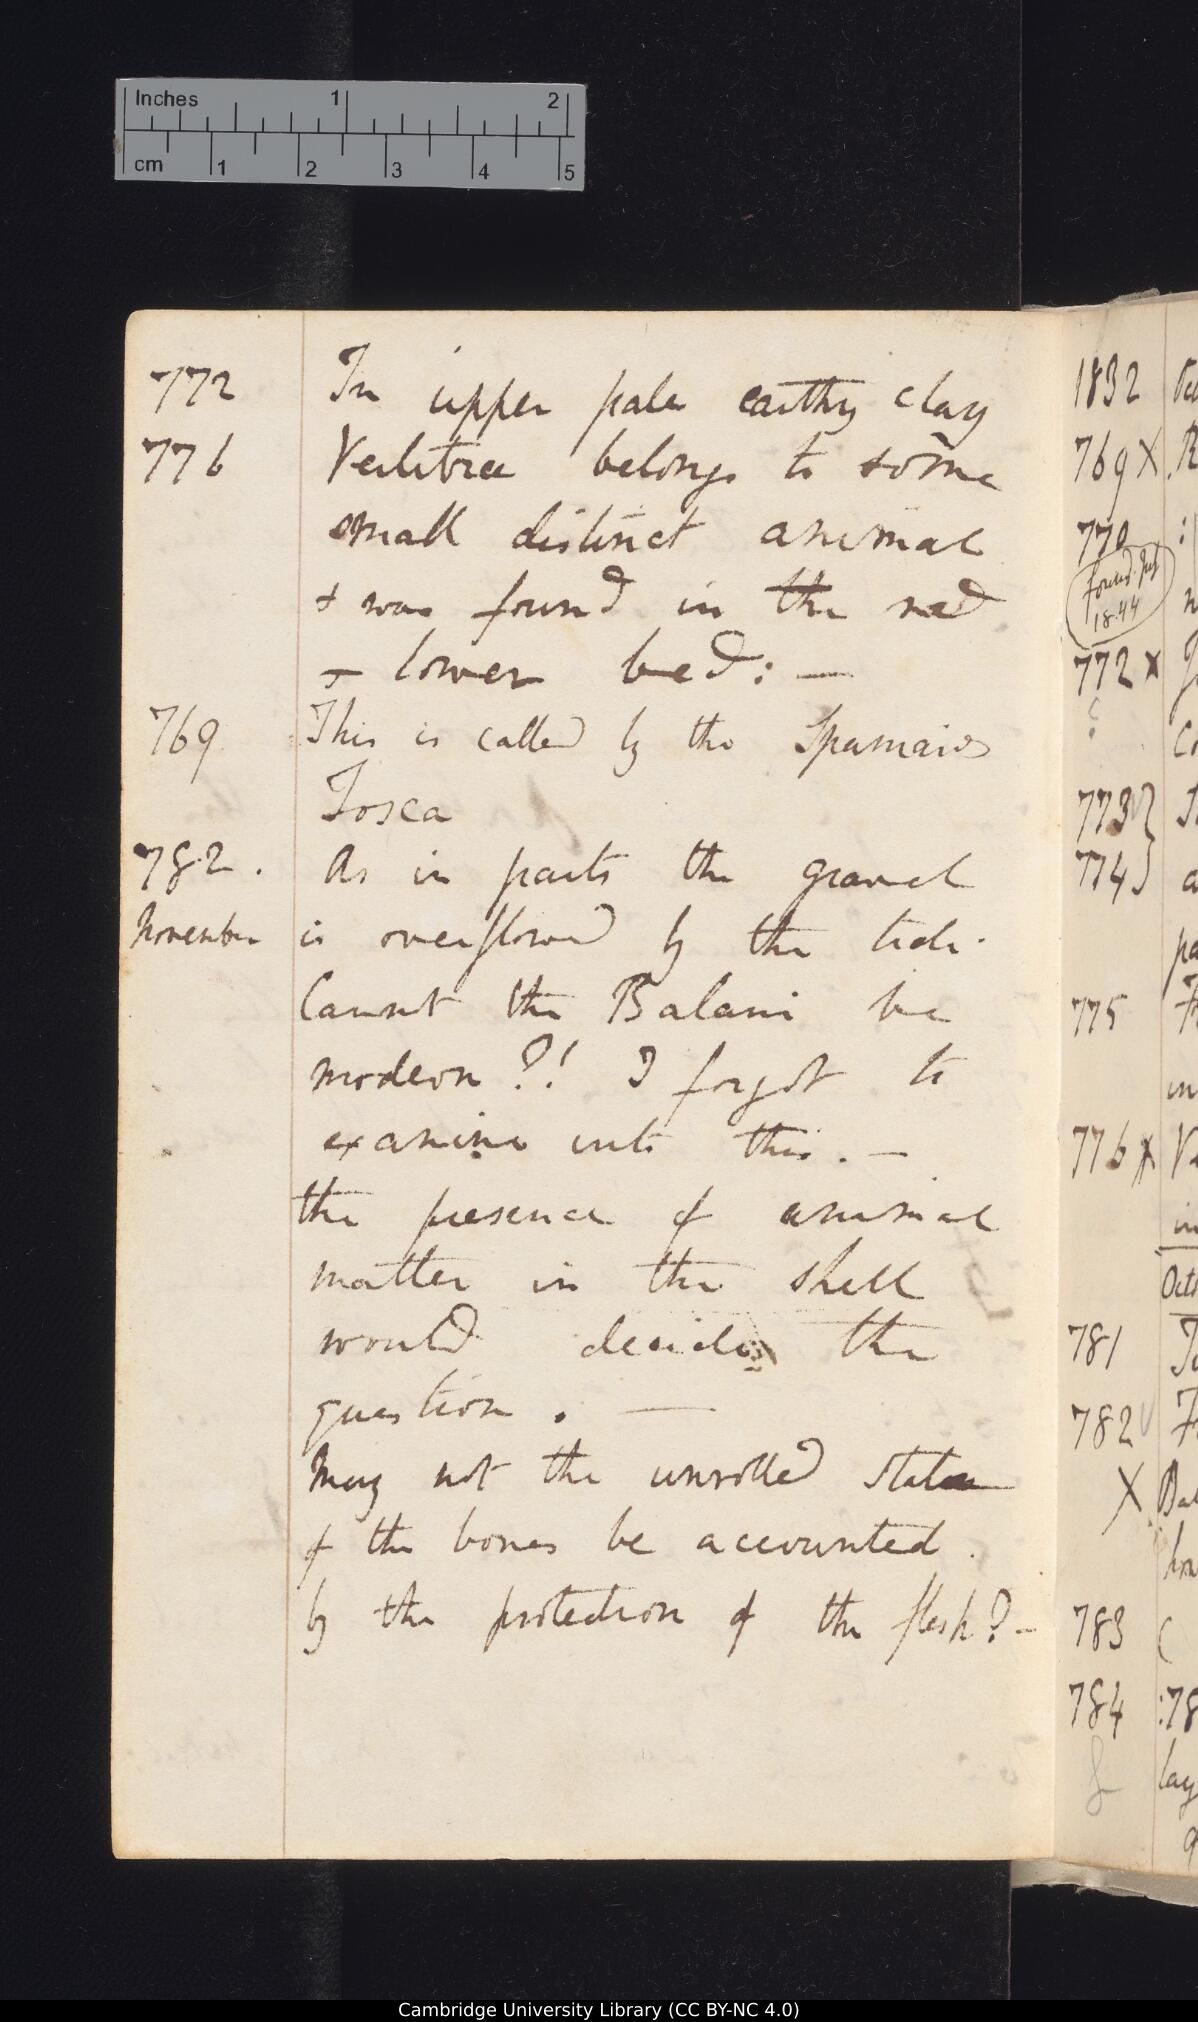 Inches 1 2
cm 1 2 3 4 5
772 In upper pale earthy clay
776 Vertebrae belongs to some
small distinct animal
& was found in the red
& lower bed: —
769 This is called by the Spaniards
Tosca
782. As in parts the gravel
November is overflowed by the tide.
Cannot the Balani be
modern?! I forgot to
examine into this. —
the presence of animal
matter in the shell
would decide the
question. —
May not the unrolled state
of the bones be accounted
by the protection of the flesh? —
1832
769 X
770
found July
1844
772 x
?
773 }
774 }
775
in
776 x
781
782
X Bal
783 (
784 :78
lay
Cambridge University Library (CC BY-NC 4.0)